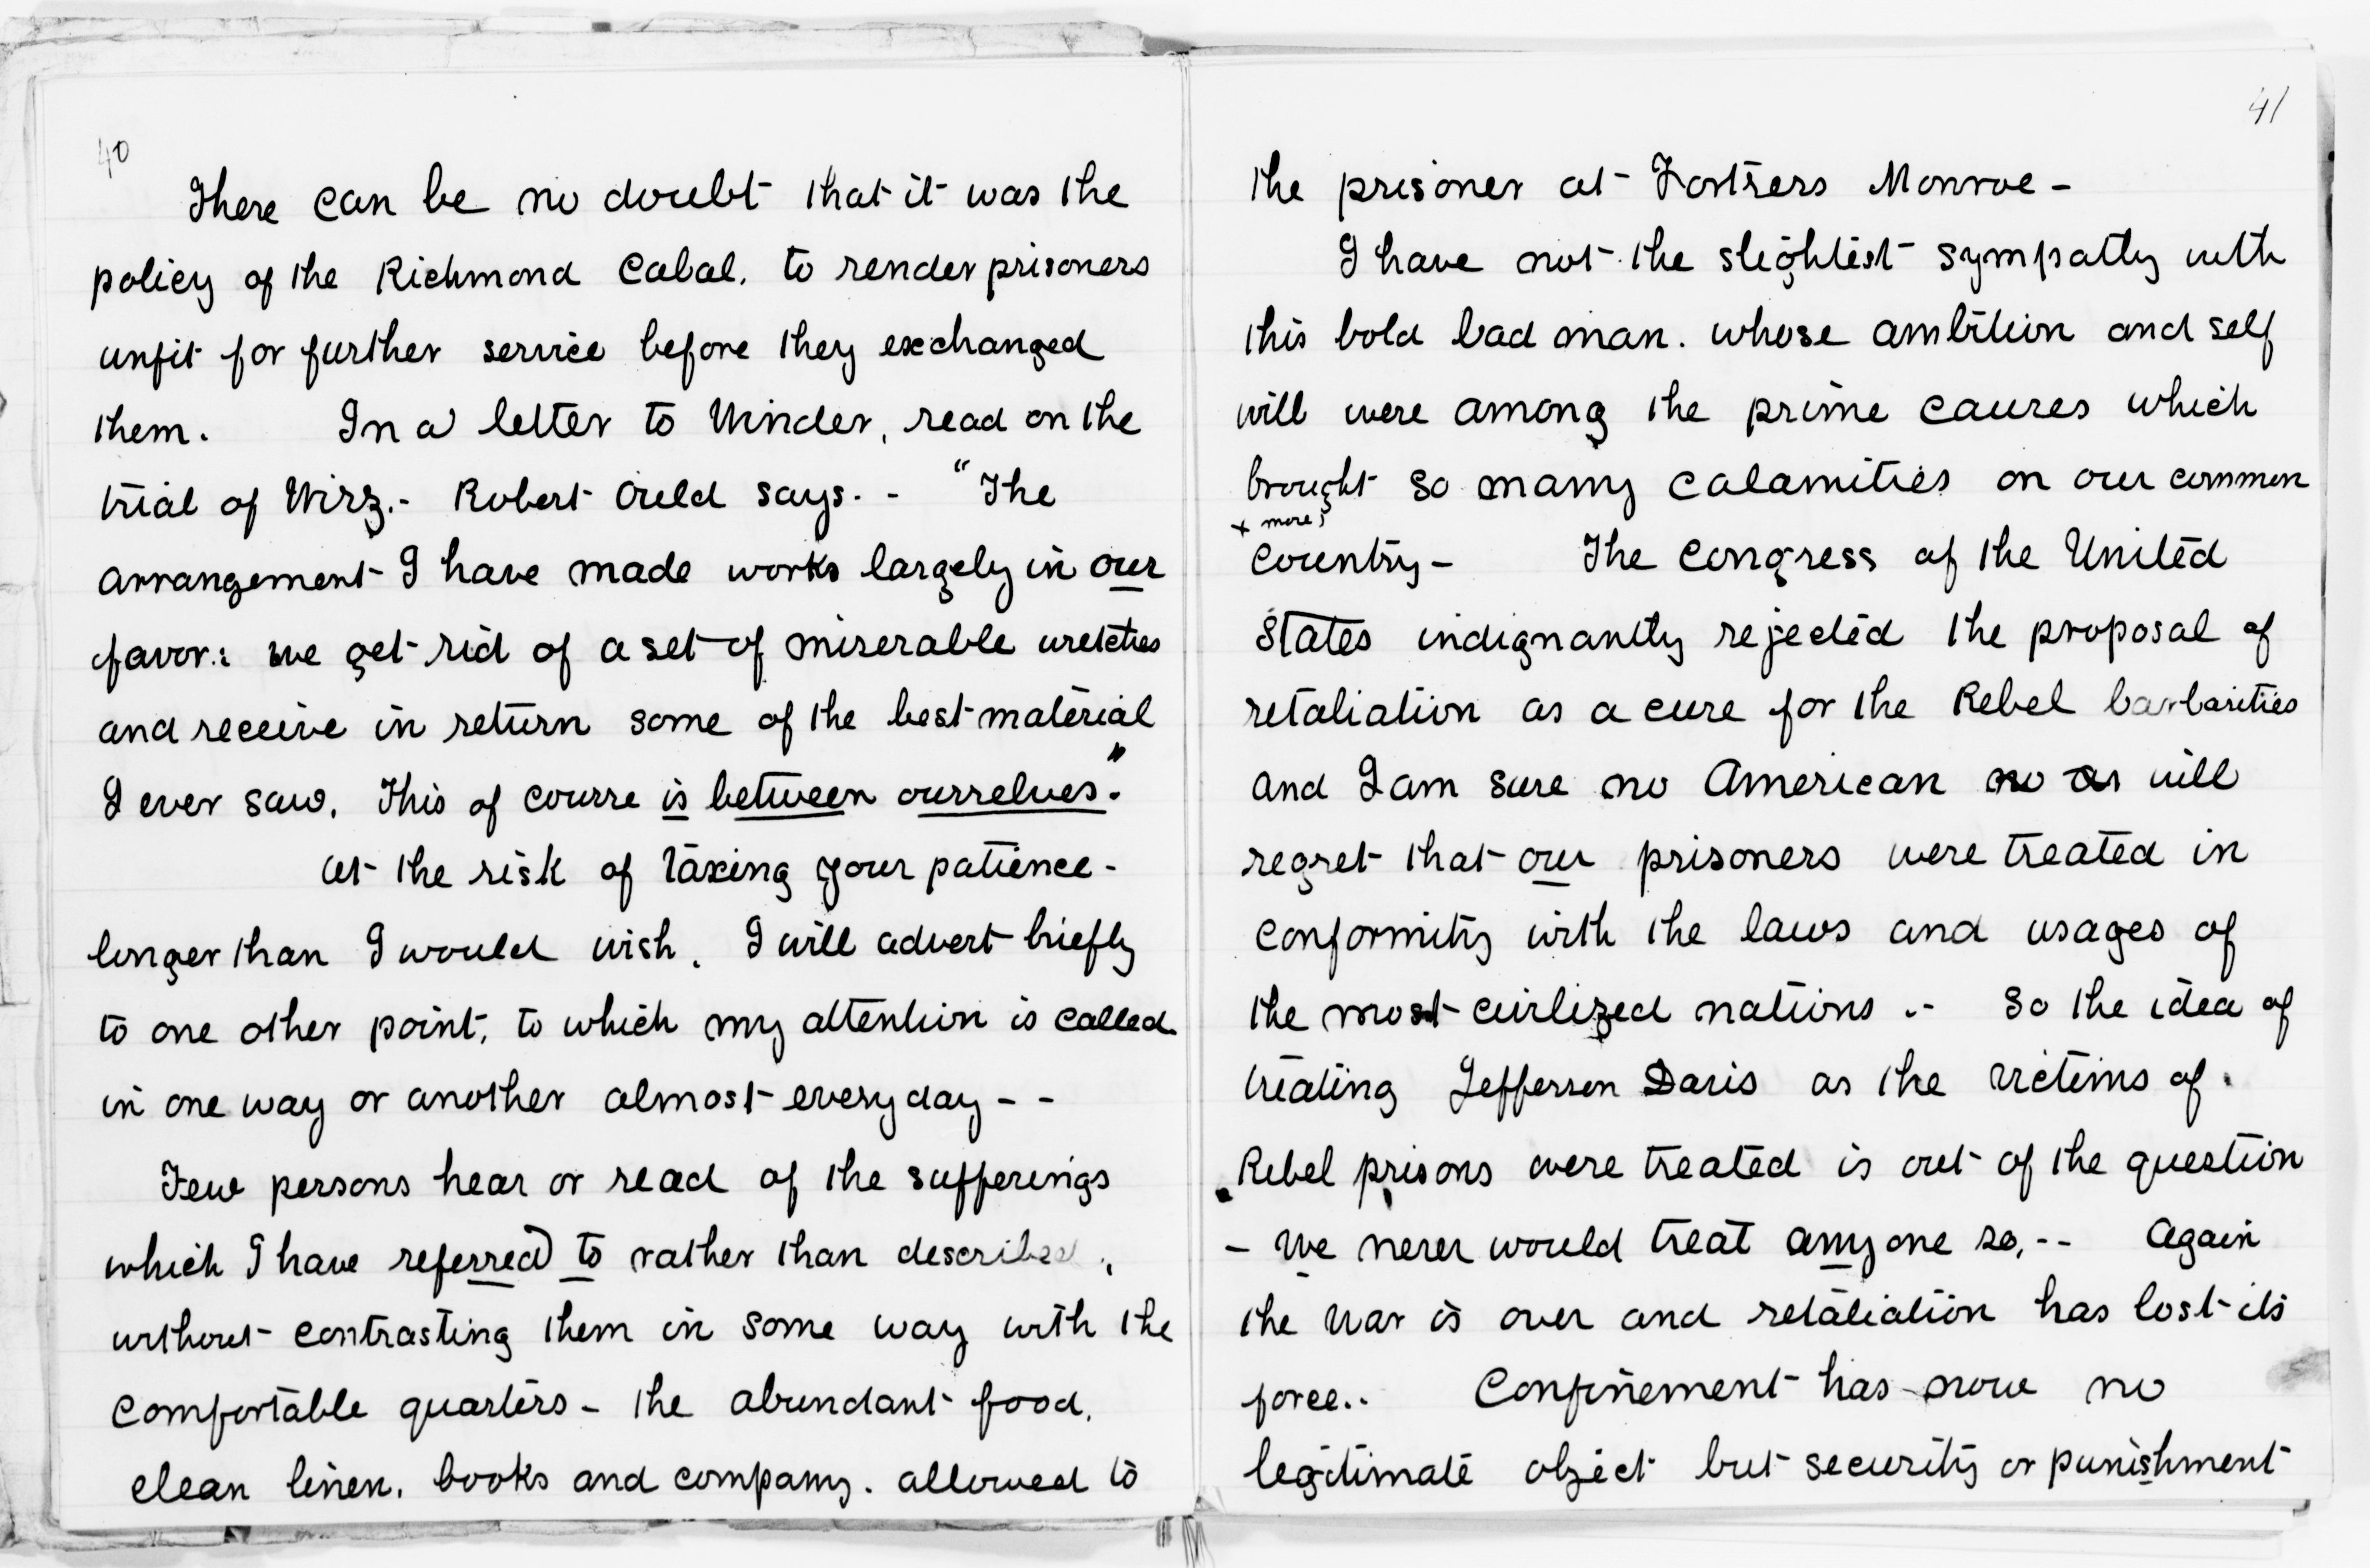 40
There can be no doubt that it was the
policy of the Richmond Cabal. to render prisoners
unfit for further service before they exchanged
them. In a letter to Winder, read on the
trial of Wirz.- Robert Ould says. - "The
arrangement I have made works largely in our
favor.: we get rid of a set of miserable wretches
and receive in return some of the best material
I ever saw. This of course is between ourselves."
At the risk of taxing your patience -
longer than I would wish. I will advert briefly
to one other point, to which my attention is called
in one way or another almost every day - -
Few persons hear or read of the sufferings
which I have referred to rather than described,
without contrasting them in some way with the
comfortable quarters - the abundant food,
clean linen, books and company. allowed to
41
the prisoner at Fortress Monroe -
I have not the slightest sympathy with
this bold bad man. whose ambition and self
will were among the prime causes which
brought so many calamities on our common
+ more,
Country - The Congress of the United
States indignantly rejected the proposal of
retaliation as a cure for the Rebel barbarities
and I am sure no American no or will
regret that our prisoners were treated in
conformity with the laws and usages of
the most civilized nations .- So the idea of
treating Jefferson Davis as the victims of
Rebel prisons were treated is out of the question
- We never would treat anyone so, -- Again
the war is over and retaliation has lost its
force.. Confinement has now no
legitimate object but security or punishment